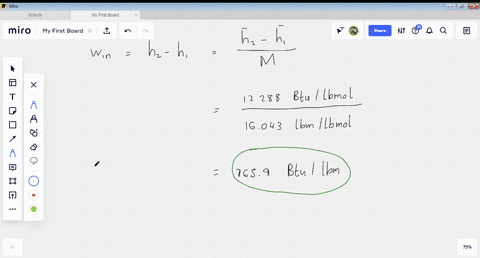 Miro
Boards
My First Board
miro
My First Board
Share
w_in = h₂ - h₁ = h̄₂ - h̄₁
M
= 12 288 Btu / lbmol
16.043 lbm / lbmol
= 765.9 Btu / lbm
75%